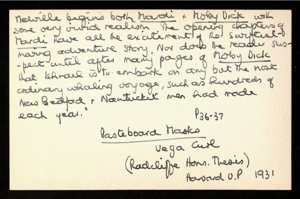 Melville begins both Mardi & Moby Dick with
some very vivid realism. The opening chapters of
Mardi have all the excitement of a
moving adventure story. Nor does the reader sus-
pect until after many pages of Moby Dick
that Ishmael is to embark on any but the most
ordinary whaling voyage, such as hundreds of
New Bedford & Nantucket men had made
each year."
P36-37
Pasteboard Masks
Vega Curl
(Radcliffe Hons. Thesis)
Harvard U.P 1931